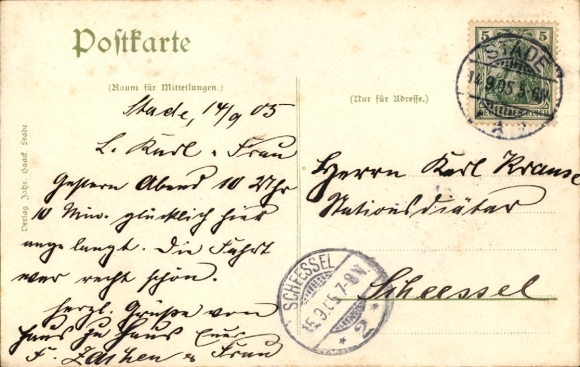 Postkarte
(Raum für Mitteilungen.)
(Nur für Adresse.)
5 5
DEUTSCHES REICH
STADE
14.9.05. 8-9N
* 2
Stade, 14/9 05
L. Karl u Frau
Gestern Abend 10 Uhr
10 Min. glücklich hier
angelangt. Die Fahrt
war recht schön.
Herzl. Grüße von
Haus zu Haus Euer
F. u Frau
Herrn Karl Krause
Stationsdiätar
Scheessel
SCHEESSEL
15.9.05. 7-8V.
* 2 *
Verlag Johs. Haack Stade